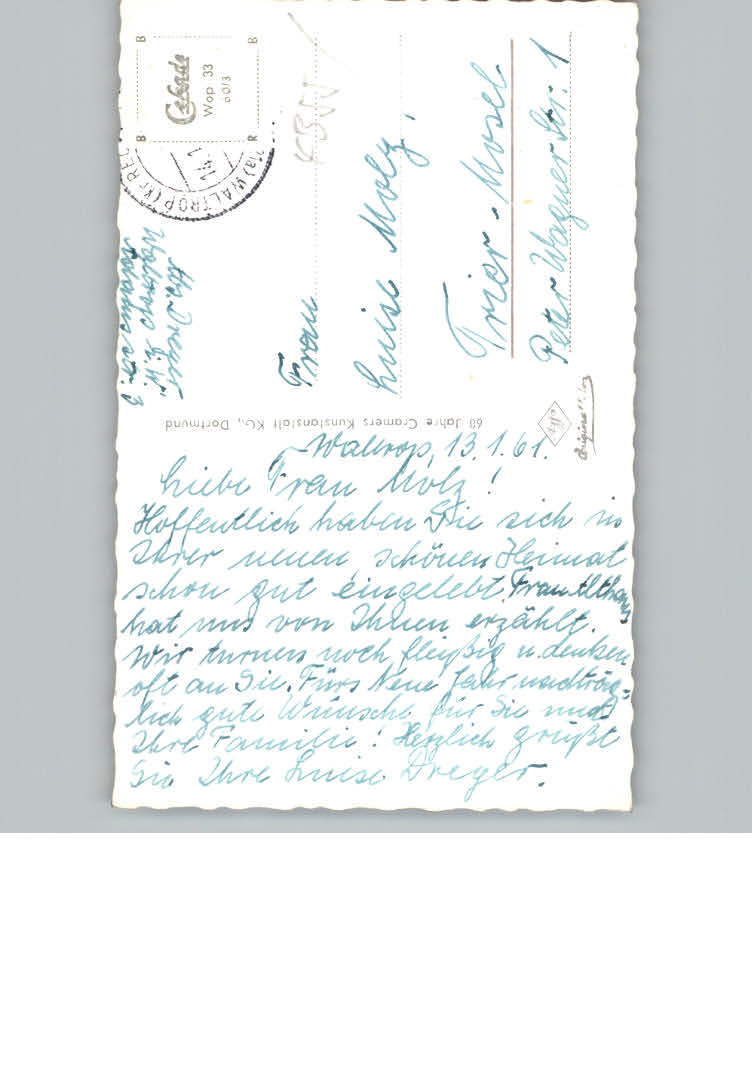 B
B
B
R
Cekade
Wop 33
60/3
WALTROP (Kr REC
14.1
Waltrop i. W.
KBW
Frau
Luise Molz,
Trier - Mosel
Peter Wagner Str. 1
60 Jahre Cramers Kunstanstalt KG., Dortmund
Waltrop, 13.1.61.
Liebe Frau Molz!
Hoffentlich haben Sie sich in
Ihrer neuen schönen Heimat
schon gut eingelebt. Frau Althans
hat uns von Ihnen erzählt.
Wir turnen noch fleißig u. denken
oft an Sie. Fürs Neue Jahr nachträg=
lich gute Wünsche für Sie und
Ihre Familie! Herzlich grüßt
Sie Ihre Luise Dreyer.